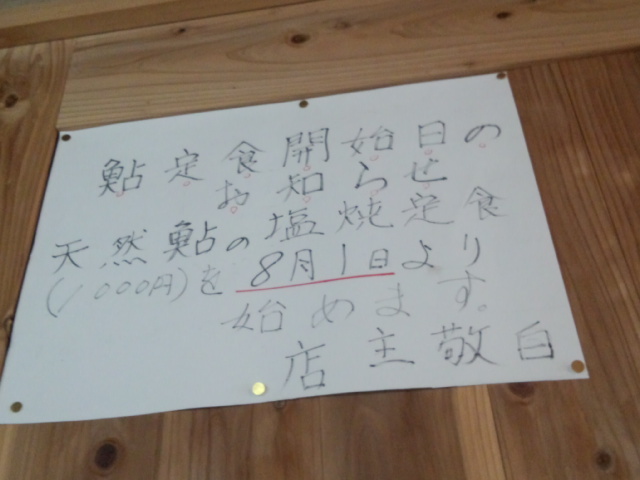 鮎定食開始日の
お知らせ
天然鮎の塩焼定食
(1000円)を8月1日より
始めます。
店主敬白